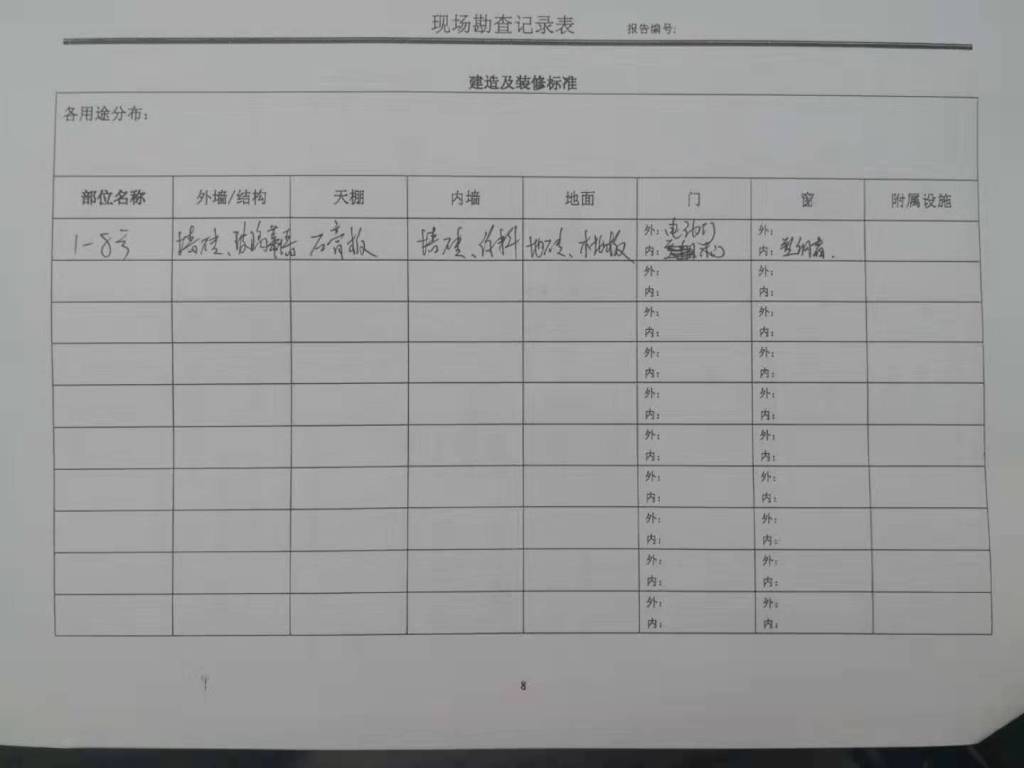 现场勘查记录表 报告编号:
建造及装修标准
各用途分布:
部位名称 外墙/结构 天棚 内墙 地面 门 窗 附属设施
1-8号 墙砖、玻璃幕墙 石膏板 墙砖、涂料 地砖、木地板 外: 电动门 外:
内: 实心 内: 塑钢窗.
外: 外:
内: 内:
外: 外:
内: 内:
外: 外:
内: 内:
外: 外:
内: 内:
外: 外:
内: 内:
外: 外:
内: 内:
外: 外:
内: 内:
外: 外:
内: 内:
外: 外:
内: 内:
8